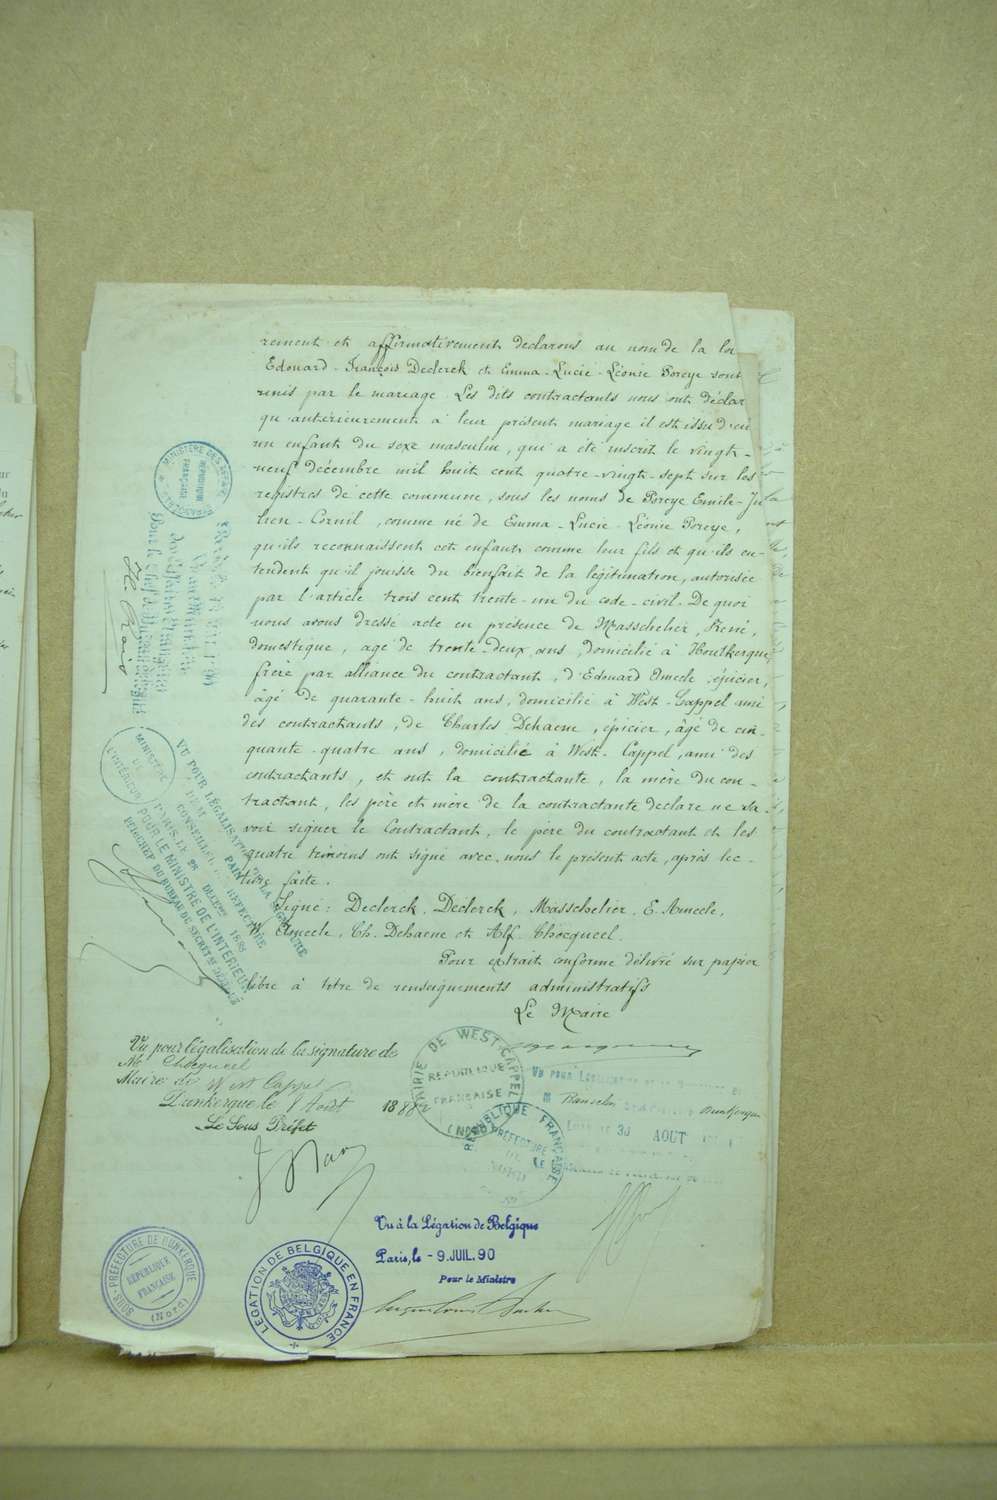 rement et affirmativement declarons au nom de la loi
Edouard-François Declerck et Emma-Lucie-Léonie Poreye sont
unis par le mariage. Les dits contractants nous ont déclar
qu'antérieurement à leur présent mariage il est issu d'eu
un enfant du sexe masculin, qui a été inscrit le vingt-
neuf décembre mil huit cent quatre-vingt-sept sur les
registres de cette commune, sous les noms de Poreye Emile-Ju
lien-Cornil, comme né de Emma-Lucie-Léonie Poreye,
qu'ils reconnaissent cet enfant comme leur fils et qu'ils en-
tendent qu'il jouisse du bienfait de la légitimation, autorisée
par l'article trois cent trente-un du code-civil. De quoi
nous avons dressé acte en présence de Masschelier, René,
domestique, agé de trente-deux ans, domicilié à Houtkerque
frère par alliance du contractant, d'Edouard Ameele, épicier,
âgé de quarante-huit ans, domicilié à West-Cappel ami
des contractants, de Charles Dehaene, épicier, âgé de cin-
quante-quatre ans, domicilié à West-Cappel, ami des
contractants, et ont la contractante, la mère du con-
tractant, les père et mère de la contractante declaré ne sa-
voir signer le Contractant, le père du contractant et les
quatre témoins ont signé avec nous le présent acte, après lec-
ture faite.
Signé: Declerck, Declerck, Masschelier, E. Ameele,
Ameele, Ch. Dehaene et Alf. Chocqueel.
Pour extrait conforme délivré sur papier
libre à titre de renseignements administratifs
Le Maire
Vu pour légalisation de la signature de
M. Chocqueel
Maire de West Cappel
Dunkerque le Août 188
Le Sous Préfet
MAIRIE DE WEST-CAPPEL
RÉPUBLIQUE
FRANÇAISE
(NORD)
RÉPUBLIQUE FRANÇAISE
30 AOUT
Vu à la Légation de Belgique
Paris, le - 9 JUIL. 90
Pour le Ministre
SOUS-PRÉFECTURE DE DUNKERQUE
RÉPUBLIQUE
FRANÇAISE
(Nord)
LÉGATION DE BELGIQUE EN FRANCE
MINISTÈRE DES AFF. ÉTRANGÈRES
RÉPUBLIQUE
FRANÇAISE
MINISTÈRE
DE
L'INTÉRIEUR
VU POUR LÉGALISATION DE LA SIGNATURE
CONSEILLER DE PREFECTURE
POUR LE MINISTRE DE L'INTÉRIEUR